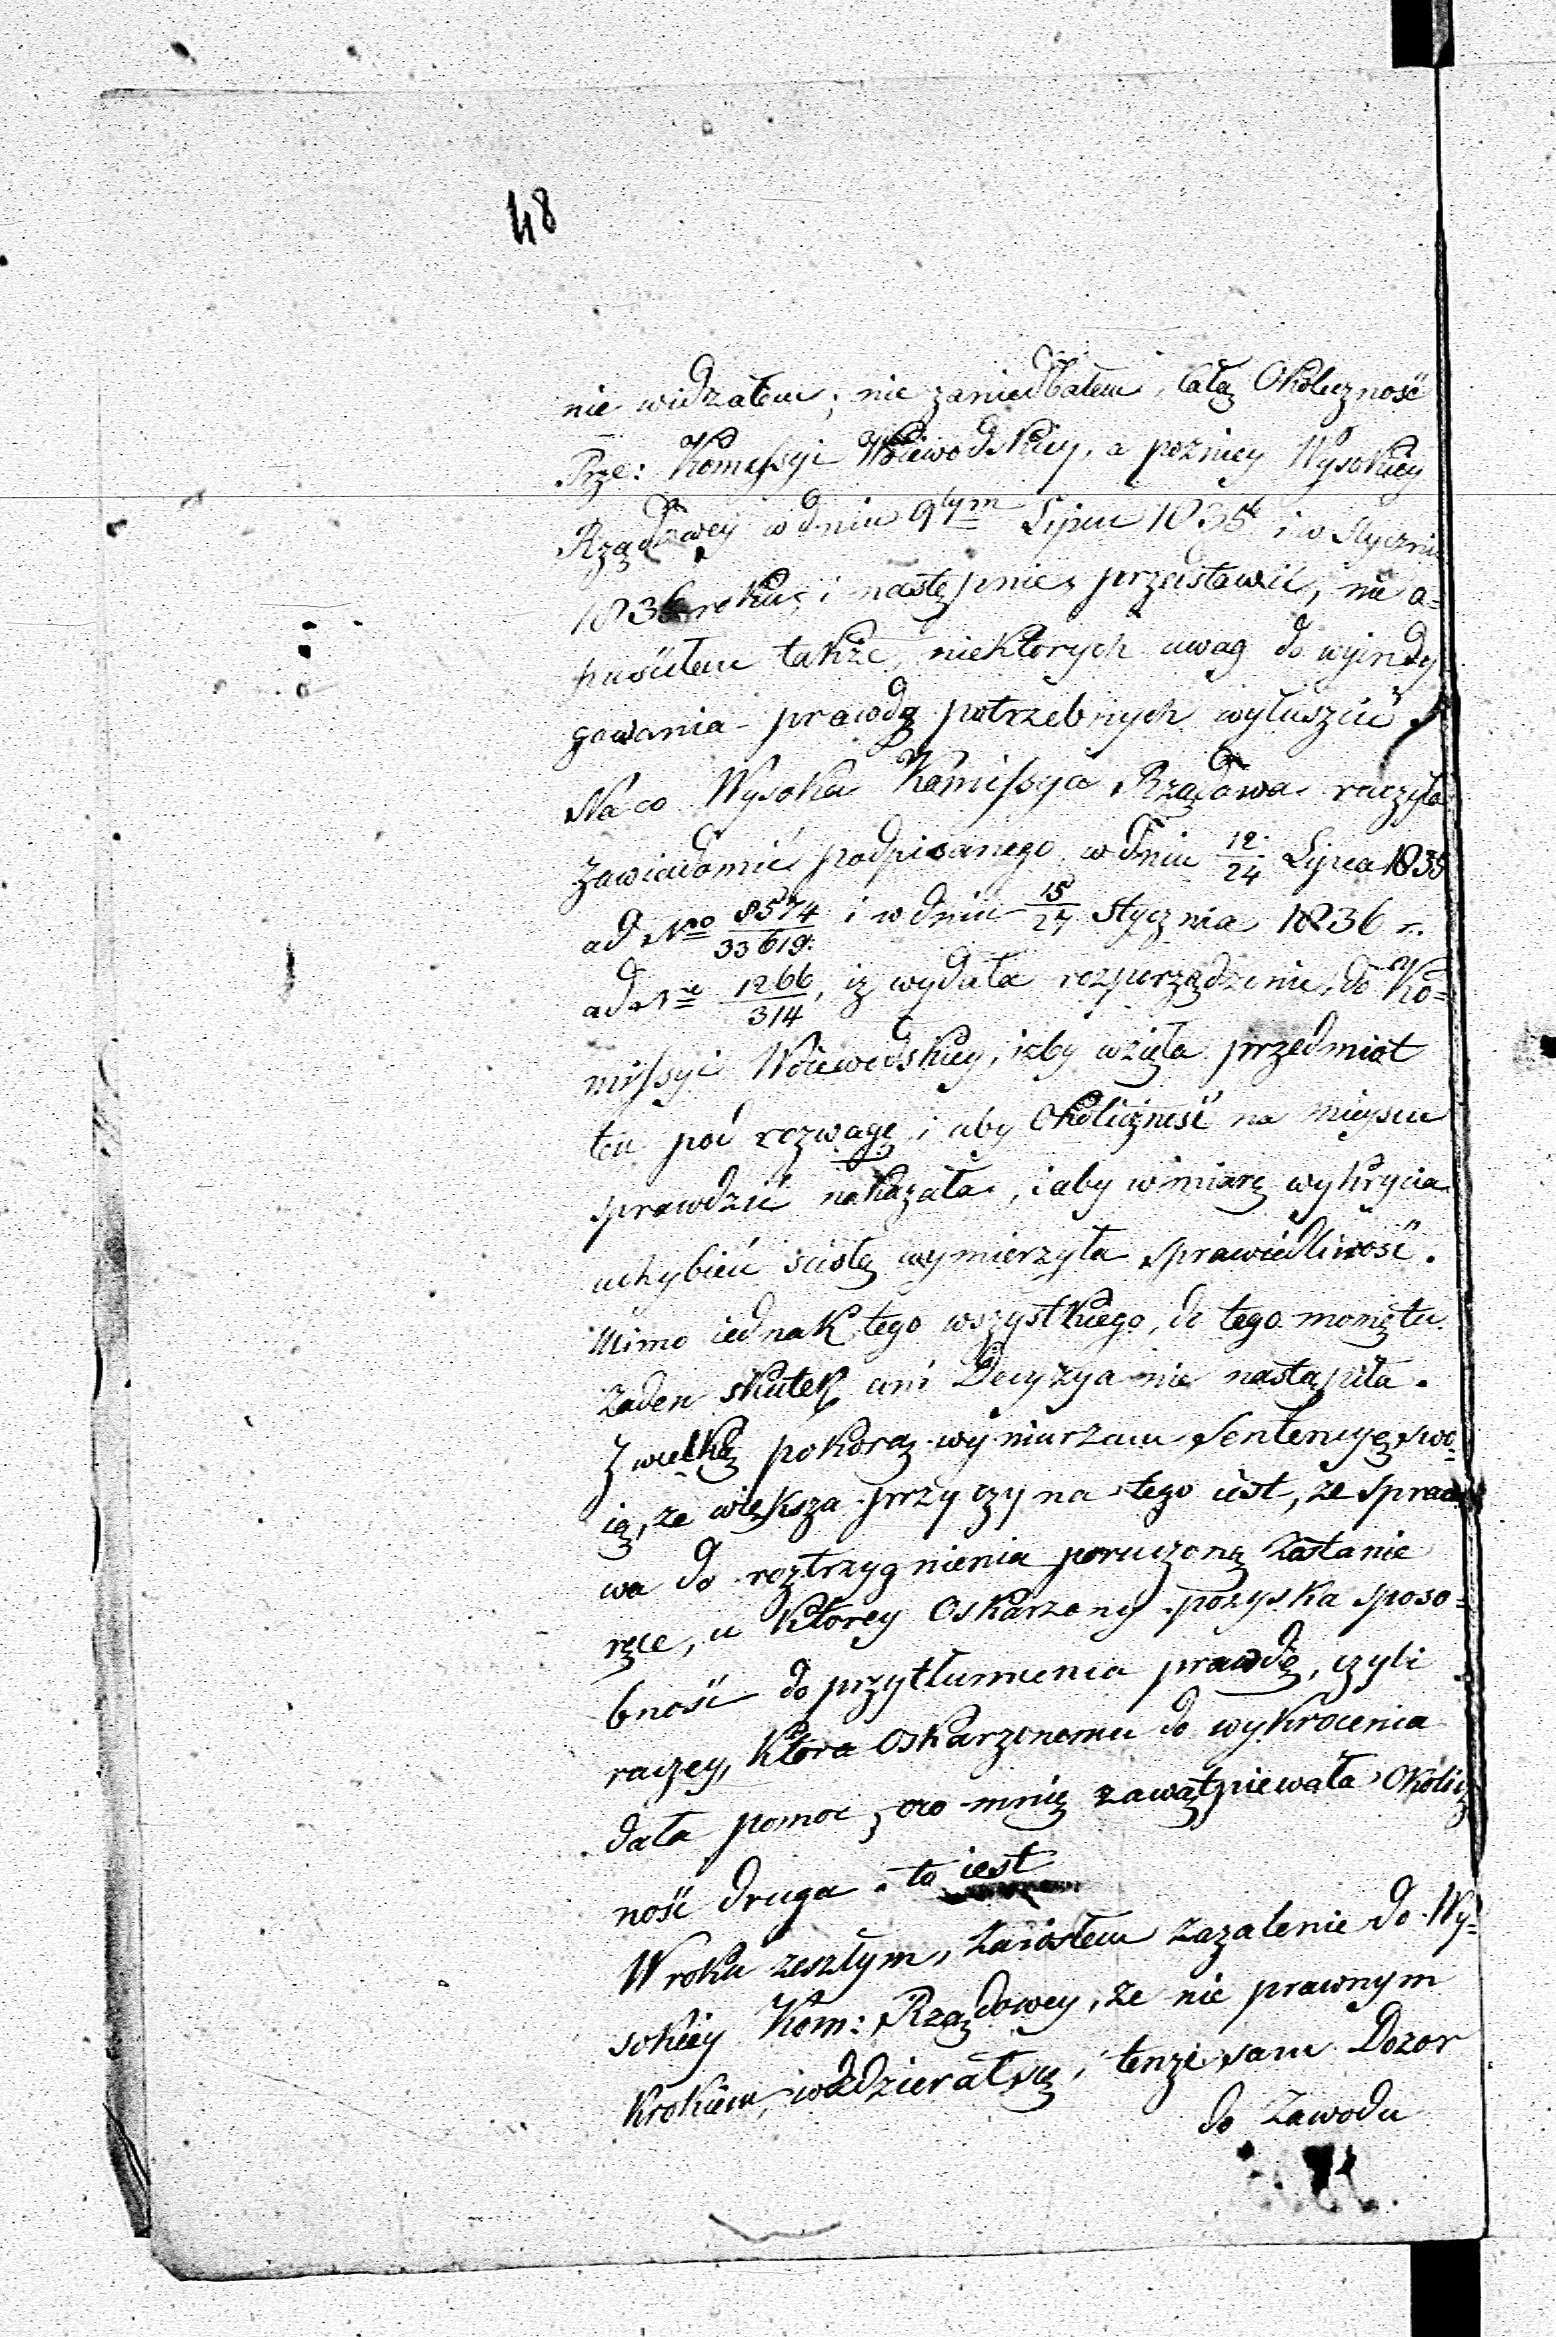 48
nie widzałem; nie zaniedbałem, całą Okoliczność
Prze: Komissyi Woiewodzkiey, a pozniey Wysokiey
Rządowey w dniu 9tym Lipca 1835 i w Styczniu
1836 roku, i następnie, przedstawić, nie o=
puściłem także, niektorych uwag do wyindy
gowania prawdy potrzebnych wyłuszcić
Na co Wysoka Komissya Rządowa raczyła
zawiadomić podpisanego w dniu 12/24 Lipca 1835
ad Nro 8574/33619. i w dniu 15/27 Stycznia 1836 r.
ad Nro 1266/314, iż wydała rozporządzenie, do Ko=
missyi Woiewodzkiey, iżby wzięła przedmiot
ten pod rozwagę, i aby Okoliczność na mieyscu
sprawdzić nakazała, i aby w miarę wykrycia
uchybień scisłą wymierzyła sprawiedliwość.
Mimo iednak tego wszystkiego, do tego momętu
żaden skutek ani Decyzya nie nastąpiła.
Z wielką pokorą wynurzam Sentencyę swo=
ią, ze większa przyczyna tego iest, ze spra
wa do roztrzygnienia poruczoną zostanie
ręce, u ktorey Oskarzony pozyska sposo=
bność do przytłumienia prawdę, czyli
raczey, ktora Oskarzonemu do wykrocenia
dała pomoc, oco mnię zawątpiewała Okolicz
ność druga. to iest
W roku zeszłym, zaniosłem zazalenie do Wy=
sokiey Kom: Rządowey, ze nie prawnym
krokiem, wdzierał się, tenze sam Dozor
do Zawodu